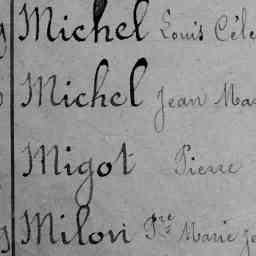 Michel Louis Céle
Michel Jean Mar
Migot Pierre
Milon Pre Marie Je